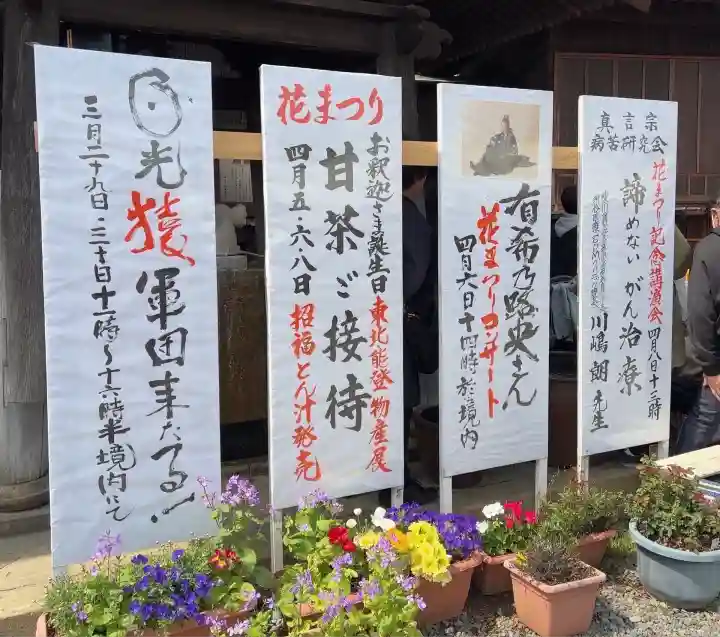 日光猿軍団来たる!
三月二十九日・三十日十一時〜十六時半境内にて
花まつり
お釈迦さま誕生日東北能登物産展
甘茶ご接待
四月五・六・八日 招福とん汁発売
有希乃路央さん
花まつりコンサート
四月六日十四時於境内
真言宗
病苦研究会
花まつり記念講演会 四月八日十三時
諦めないがん治療
川嶋 朗 先生